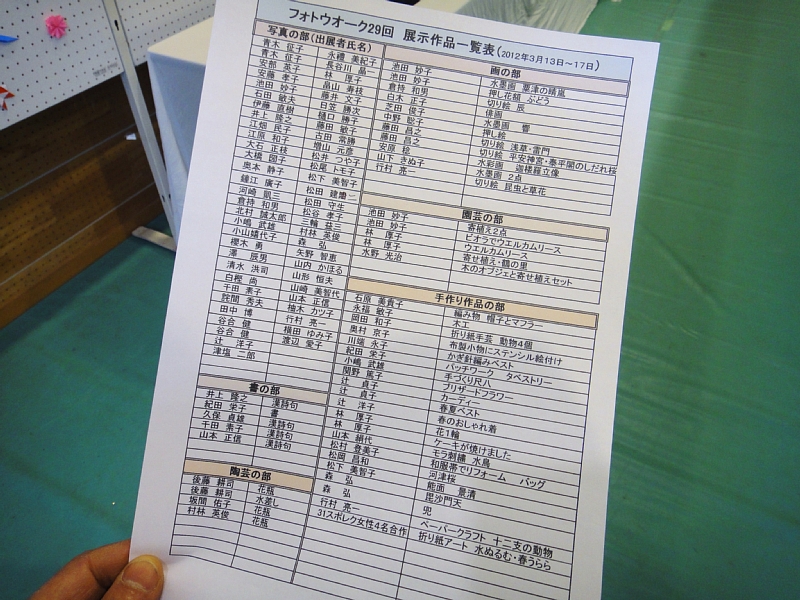 フォトウオーク29回 展示作品一覧表(2012年3月13日～17日)
写真の部(出展者氏名)
青木 征子 永禮 美紀子
青木 征子 長谷川 晶一
安部 英子 林 厚子
安藤 孝子 畠山 寿枝
池田 妙子 藤井 文子
石田 敏夫 日笠 勝次
伊藤 直樹 樋口 勝子
井上 隆之 藤田 敏子
江畑 民子 古田 常勝
江原 和子 増山 元彦
大石 正枝 松井 つや子
大橋 図子 松尾 トモ子
奥本 静子 松下 美智子
鐘江 廣子 松田 建雄二
河崎 凱三 松田 守生
倉持 和男 松谷 孝子
北村 誠太郎 三輪 益三
小嶋 武雄 村林 英俊
小山嬉代子 森 弘
櫻木 勇 矢野 智恵
澤 辰男 山内 かほる
清水 洪司 山形 恒夫
白樫 尚 山崎 美智代
千田 素子 山本 正信
舘間 秀夫 柚木 カツ子
田中 博 行村 亮一
谷合 健 横田 ゆみ子
谷合 健 渡辺 愛子
辻 洋子
津塩 二郎
書の部
井上 隆之 漢詩句
紀田 栄子 書
久保 貞雄 漢詩句
千田 素子 漢詩句
山本 正信 漢詩句
陶芸の部
後藤 耕司 花瓶
後藤 耕司 水差し
坂間 佑子 花瓶
村林 英俊 花瓶
画の部
池田 妙子 水墨画 粟津の晴嵐
池田 妙子 押し花額 ぶどう
倉持 和男 切り絵 辰
白木 正子 俳画
芝田 俊子 水墨画 響
中野 聡子 押し絵
藤田 昌之 切り絵 浅草・雷門
藤田 昌之 切り絵 平安神宮・泰平開のしだれ桜
安原 稔 水彩画 迦楼羅立像
山下 きぬ子 水墨画 2点
行村 亮一 切り絵 昆虫と草花
園芸の部
池田 妙子 寄植え2点
池田 妙子 ビオラでウエルカムリース
林 厚子 ウエルカムリース
林 厚子 寄せ植え・鶴の里
水野 光治 木のオブジェと寄せ植えセット
手作り作品の部
石原 美貴子 編み物 帽子とマフラー
永福 敏子 木工
岡田 和子 折り紙手芸 動物4個
奥村 京子 布製小物にステンシル絵付け
川端 永子 かぎ針編みベスト
紀田 栄子 パッチワーク タペストリー
小嶋 武雄 手づくり尺八
関野 篤子 ブリザードフラワー
辻 貞子 カーディー
辻 貞子 春夏ベスト
辻 洋子 春のおしゃれ着
林 厚子 花1輪
林 厚子 ケーキが焼けました
山本 絹代 モラ刺繍 水鳥
松村 登美子 和服帯でリフォーム バッグ
松岡 昌和 河津桜
松下 美智子 能面 景清
森 弘 毘沙門天
森 弘 兜
行村 亮一 ペーパークラフト 十二支の動物
31スポレク女性4名合作 折り紙アート 水ぬるむ・春うらら